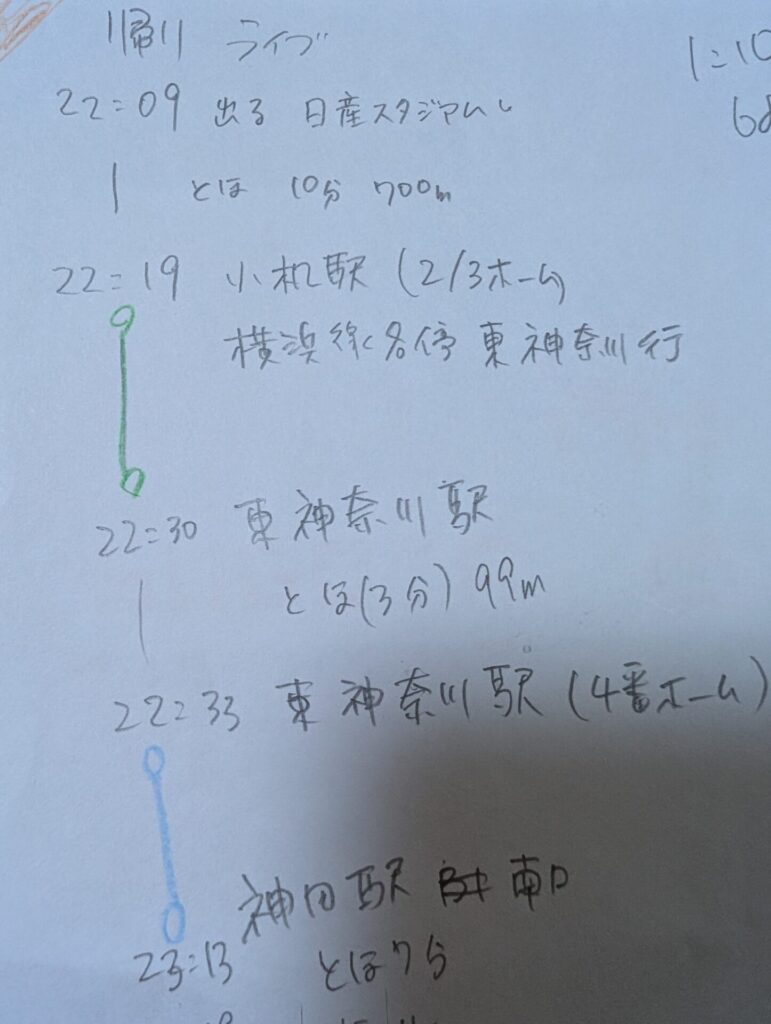 帰り ライブ
1:10
22:09 出る 日産スタジアム
| とほ 10分 700m
22:19 小机駅 (2/3ホーム)
横浜線各停 東神奈川行
22:30 東神奈川駅
| とほ(3分) 99m
22:33 東神奈川駅 (4番ホーム)
神田駅 南口
23:13 とほ7分